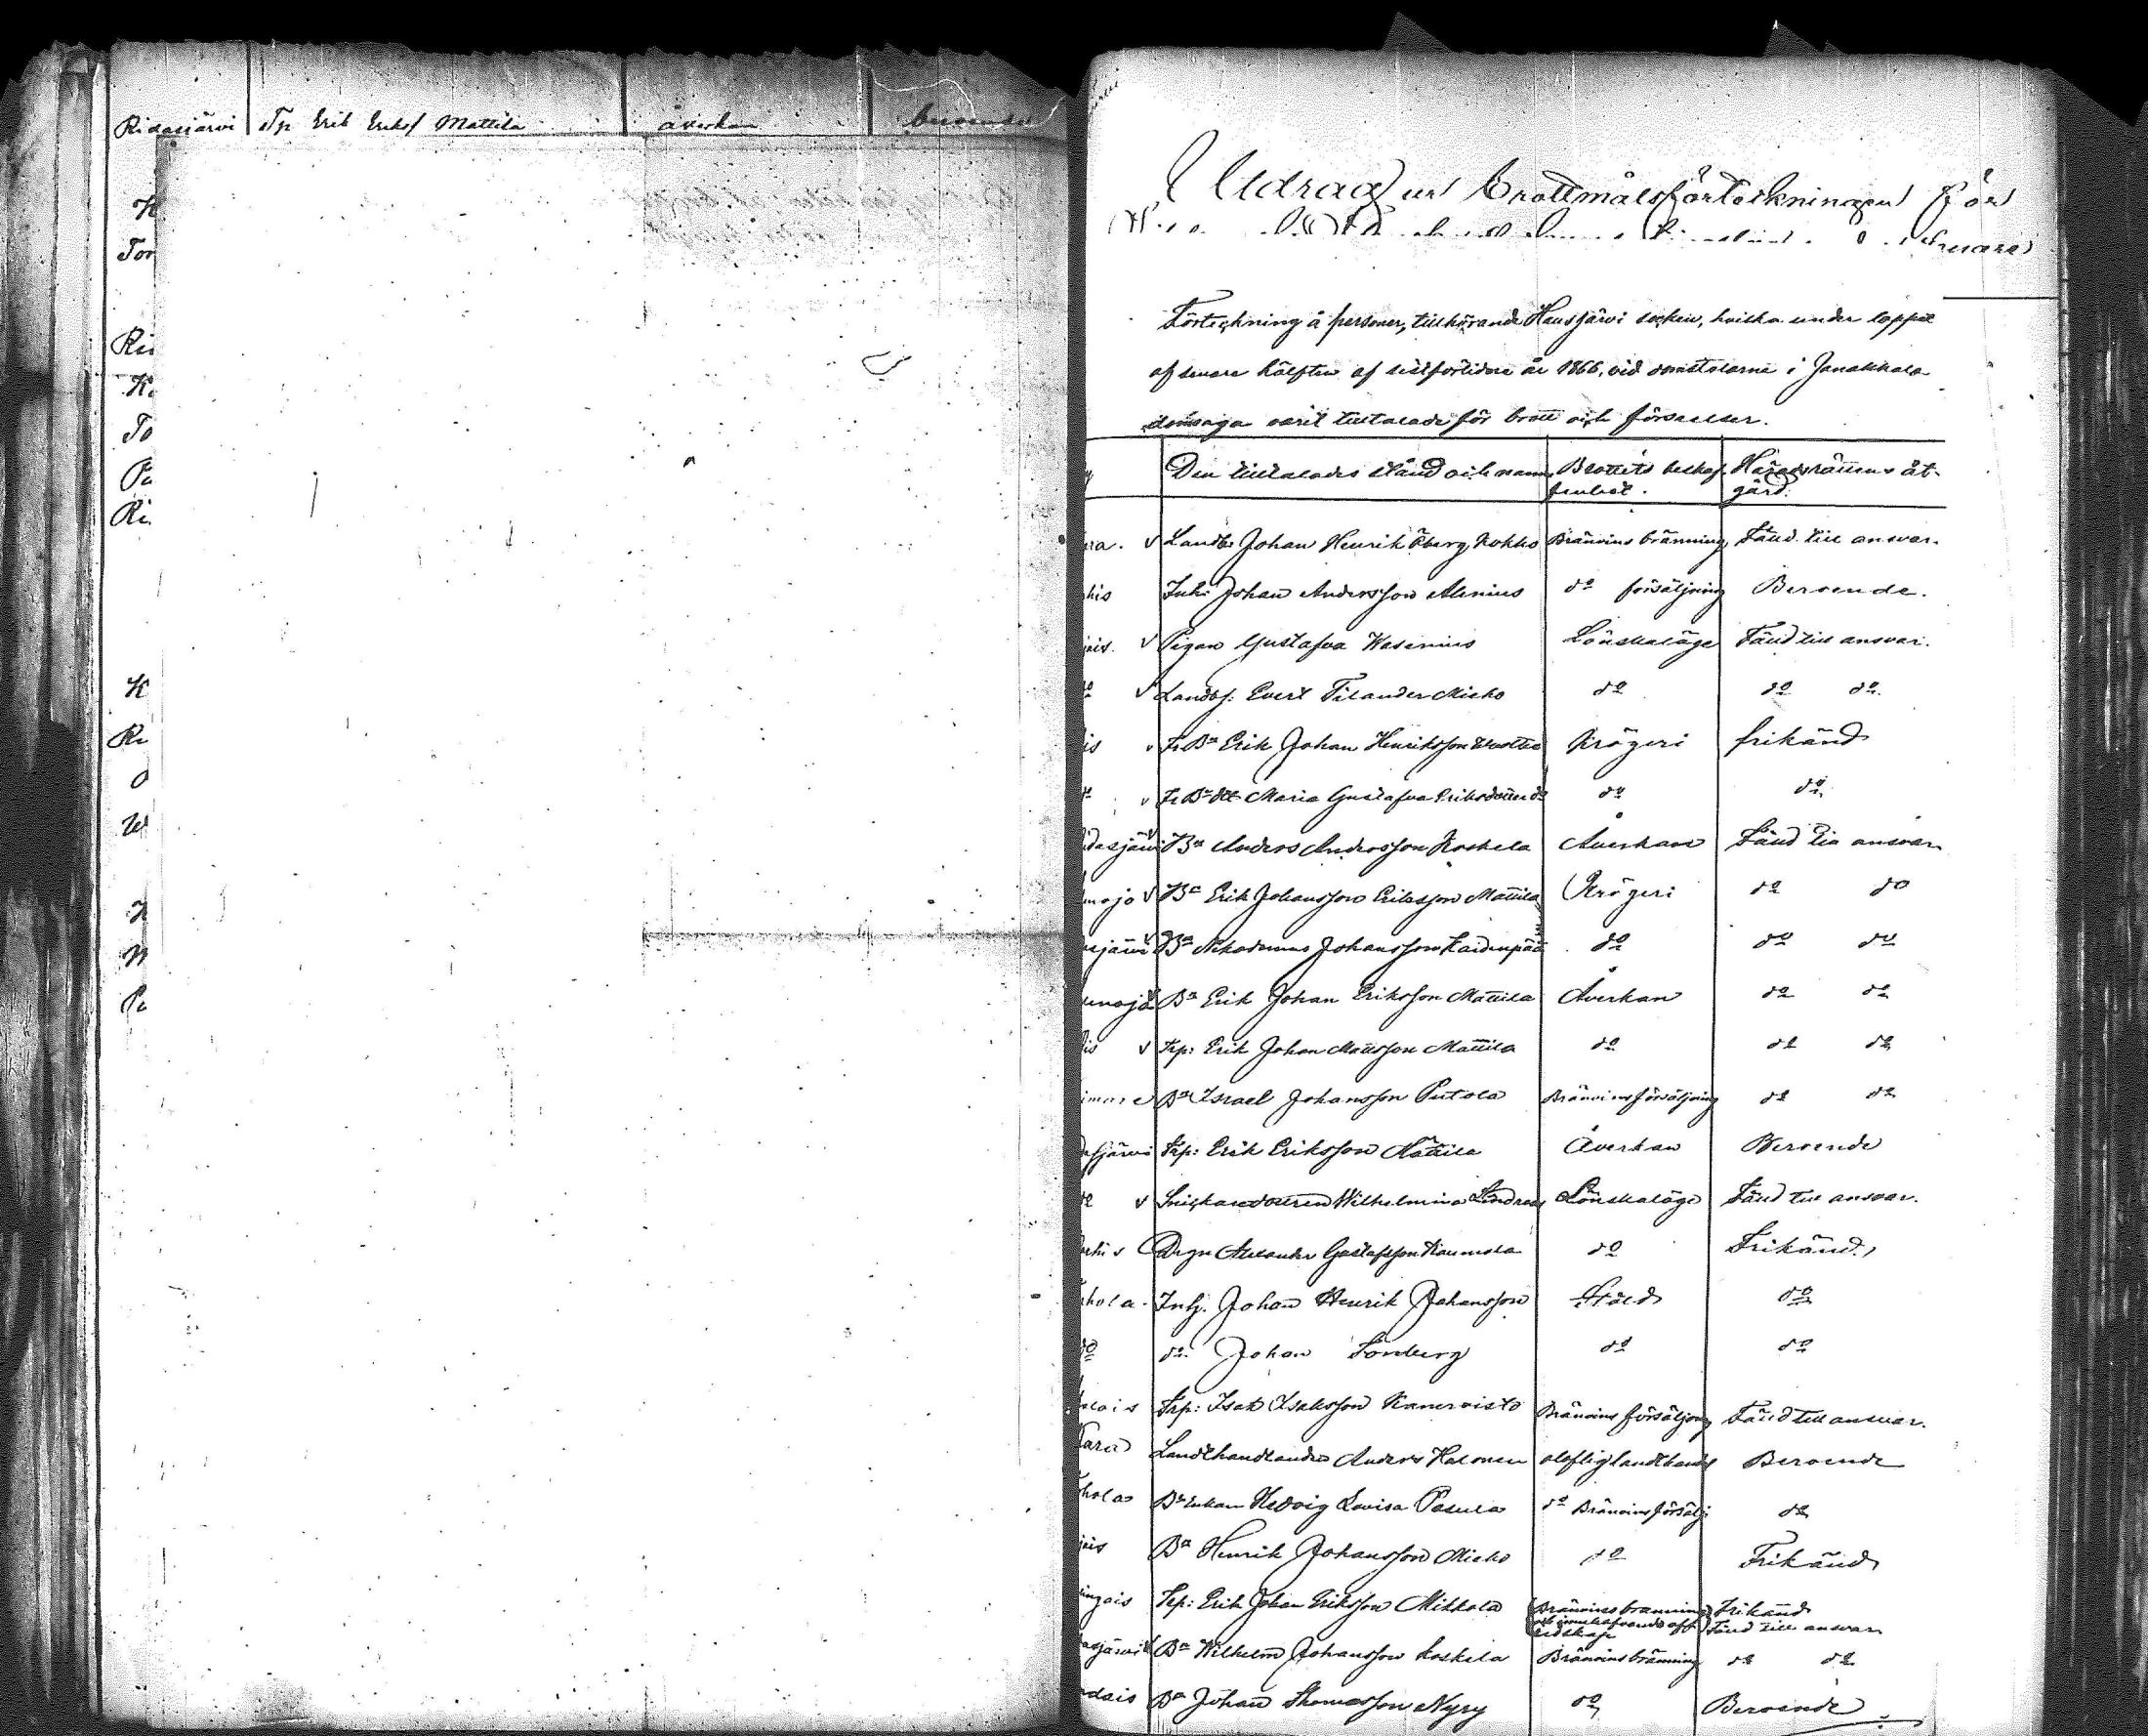 Ridasjärvi Tp Erik Eriks/ Mattila åverkan beroende
K
Tor
Rii
To
Pa
Ri
K
Ri
O
W
N
Utdrag ur Brottmålsförteckningen för
senare
Förteckning å personer, tillhörande Hausjärvi socken, hvilka under loppet
af senare hälften af sistförlidne år 1866, vid domstolarne i Janakkala
domsaga varit tilltalade för brott och förseelser.
Den tilltalades stånd och namn Brottets beskaf- Häradsrättens åt-
fenhet. gärd.
ra. v Landb: Johan Henrik Öberg Kokko Bränvins bränning Fäld till ansvar.
his Inh: Johan Andersson Alenius do försäljning Beroende.
jais. v Pigan Gustafva Wasenius Lönskaläge Fäld till ansvar.
do v Landbs: Evert Tilander Micko do do do
is v Fr Bn Erik Johan Henriksson Krögeri frikänd
do v Fr Bn dtt Maria Gustafva Eriksdotter do do do
idasjärvi v Bn Anders Andersson Koskela Åverkan Fäld till ansvar
mojo v Bn Erik Johansson Eriksson Mattila Krögeri do do
sjärvi v Bn Nikodemus Johansson Kaidenpää do do do
unojo v Bn Erik Johan Eriksson Mattila Åverkan do do
is v Trp: Erik Johan Mattsson Mattila do do do
imare Bn Israel Johansson Putola Bränvinsförsäljning do do
asjärvi Trp: Erik Eriksson Mattila Åverkan Beroende
do v Wilhelmina Lönskaläge Fäld till ansvar.
Drgn Alexander Gustafsson do Frikänd.
hola. Inh. Johan Henrik Johansson Stöld do
do do Johan Sönberg do do
lais Trp: Isak Isaksson Kanervisto Bränvins försäljning Fäld till ansvar.
Kara Landthandlanden Anders Halonen olaflig landthandel Beroende
hola Bn Enkan Hedvig Lovisa Pasula do Bränvinsförsälj: do
jais Bn Henrik Johansson Micko do Frikänd
ingais Trp: Erik Johan Eriksson Mikkola Bränvinsbränning Frikänd
och Fäld till ansvar
asjärvi v Bn Wilhelm Johansson Koskela Bränvinsbränning do do
dais Bn Johan Thomasson Nyry do Beroende